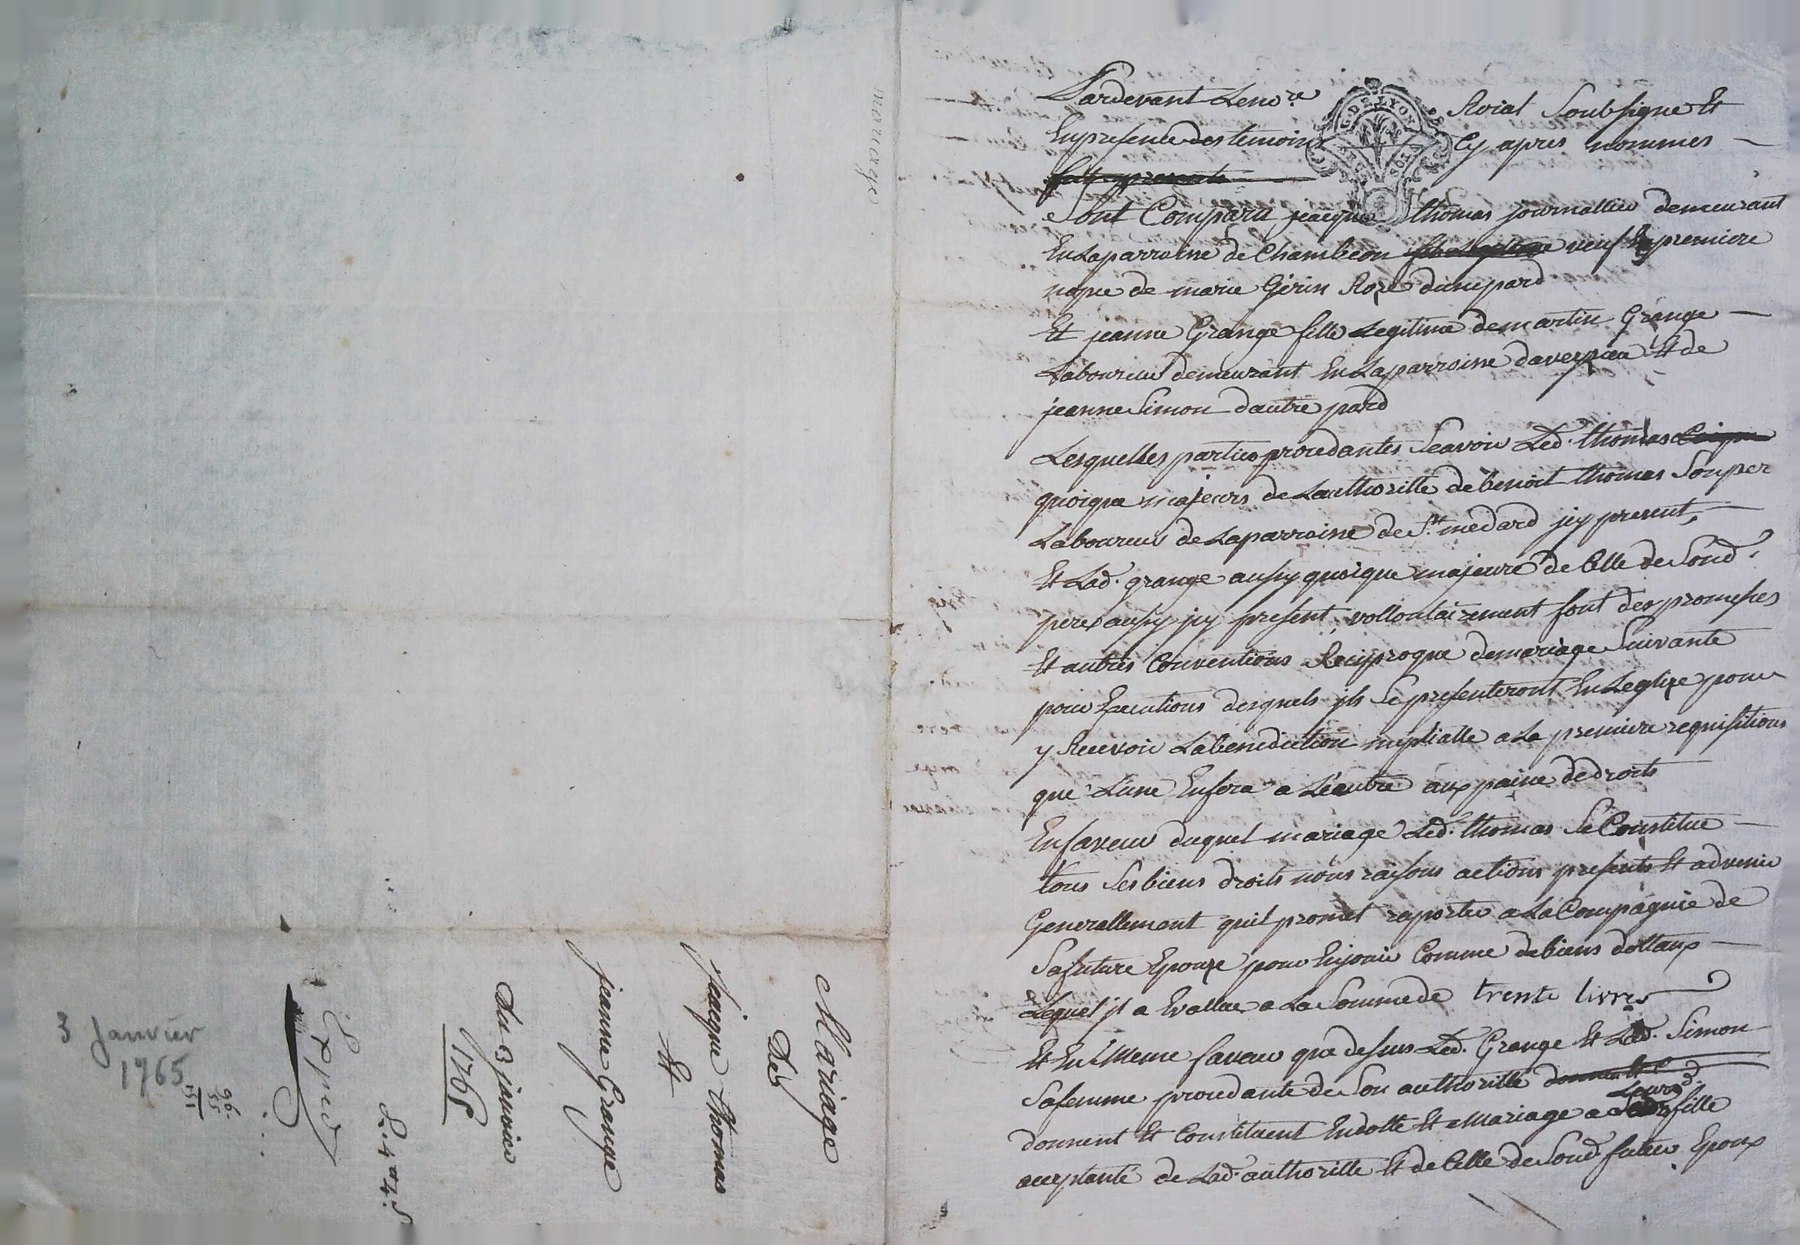 mariage
Mariage
Des
Jacque thomas
Et
jeanne Grange
Du 3 janvier
1765
3 Janvier
1765
Pardevant Leno.re Roial Soubsigne Et
Enpresence des temoins Cy apres nommes
G. DE LYON
Sont Comparu jacque thomas journallier demeurant
En Laparroisse de Chambeon veuf En premiere
nopce de marie Gerin Roze dune pard
Et jeanne Grange fille Legitime de martin Grange
Laboureur demeurant En Laparroisse daveyzieu Et de
jeanne Simon dautre pard
Lesquelles parties procedantes Scavoir Led. thomas
quoique majeurs de Lauthoritté de benoit thomas Son per
Laboureur de Laparroisse de St. medard jcy present,
Et Lad. grange aussy quoique majeure de Celle de Sond.
pere aussy jcy present, vollontairement font des promesses
Et autres Conventions Reciproque de mariage Suivante
pour Executions desquels jls Se presenteront En Leglize pour
y Recevoir Labenediction nuptialle a La premiere requisitions
que Lune Enfera a Lautre aux paine de droits
En faveur duquel mariage Led. thomas Se Constitue
tous Ses biens droits noms raisons actions presents Et advenir
Generallement quil promet raporter a La Compagnie de
Safuture Epouze pour Enjouir Comme de biens dottaux
Lequel jl a Evallue a La Somme de trente livres
Et En Meme faveur que dessus Led. Grange Et Lad. Simon
Safemme procedante de Son authoritté
donnent Et Constituent Endotte Et Mariage a Leurd. fille
acceptante de Lad. authoritté Et de Celle de Sond. futur Epoux